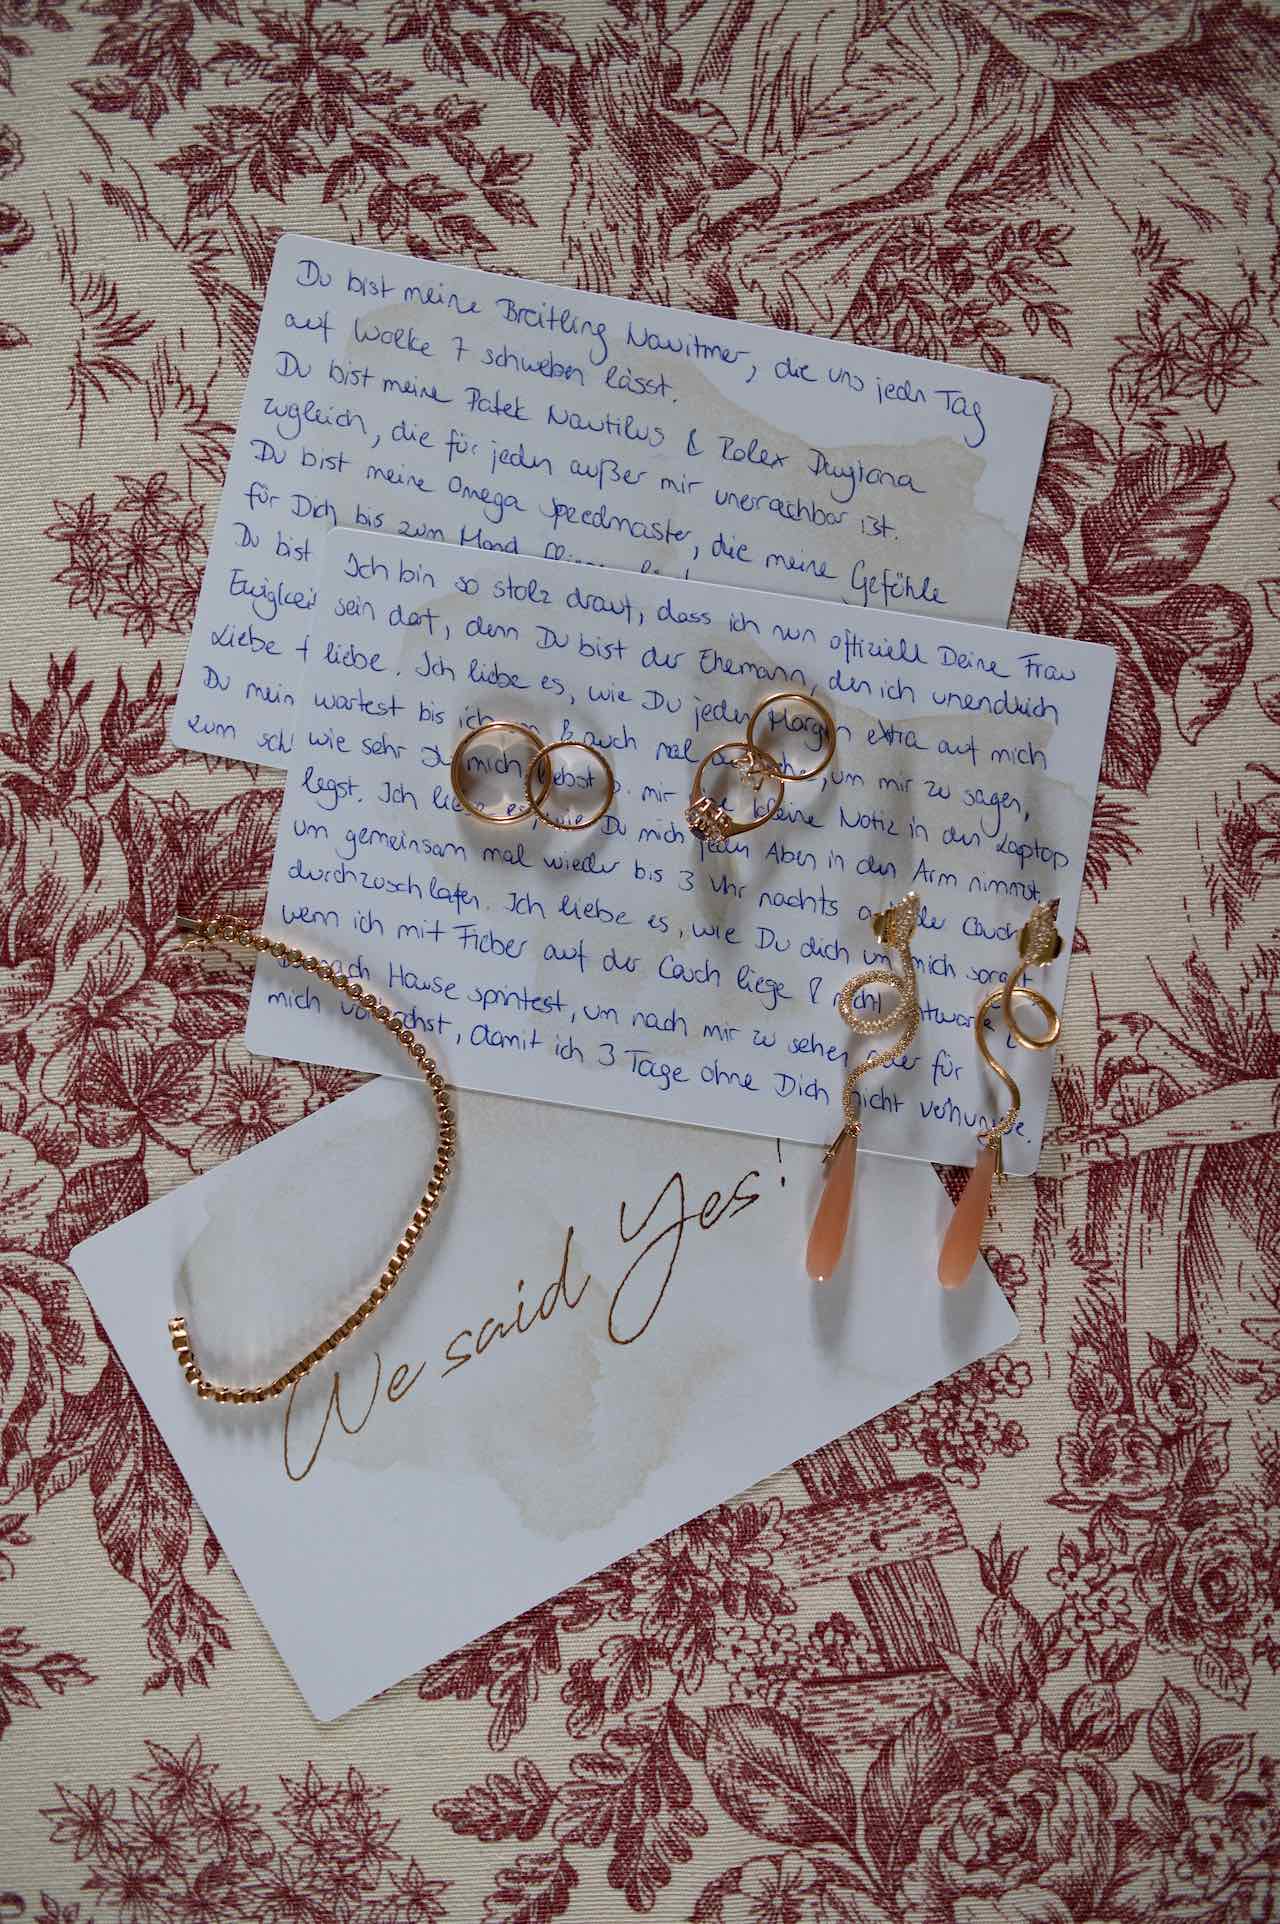 Du bist meine Breitling Navitmer, die uns jeden Tag
auf Wolke 7 schweben lässt.
Du bist meine Patek Nautilus & Rolex Daytona
zugleich, die für jeden außer mir unerreichbar ist.
Du bist meine Omega Speedmaster, die meine Gefühle
für Dich bis zum Mond
Du bist
Ewigkei
Liebe +
Du mein
zum
Ich bin so stolz drauf, dass ich nun offiziell Deine Frau
sein darf, denn Du bist der Ehemann, den ich unendlich
liebe. Ich liebe es, wie Du jeden Morgen extra auf mich
wartest bis ich & auch mal , um mir zu sagen,
wie sehr Du mich liebst mir kleine Notiz in den Laptop
legst. Ich liebe es, wie Du mich jeden Aben in den Arm nimmst,
um gemeinsam mal wieder bis 3 Uhr nachts auf der Couch
durchzuschlafen. Ich liebe es, wie Du dich um mich sorgst
wenn ich mit Fieber auf der Couch liege & nicht antworte &
Du nach Hause sprintest, um nach mir zu sehen oder für
mich vorkochst, damit ich 3 Tage ohne Dich nicht verhungre.
We said Yes!